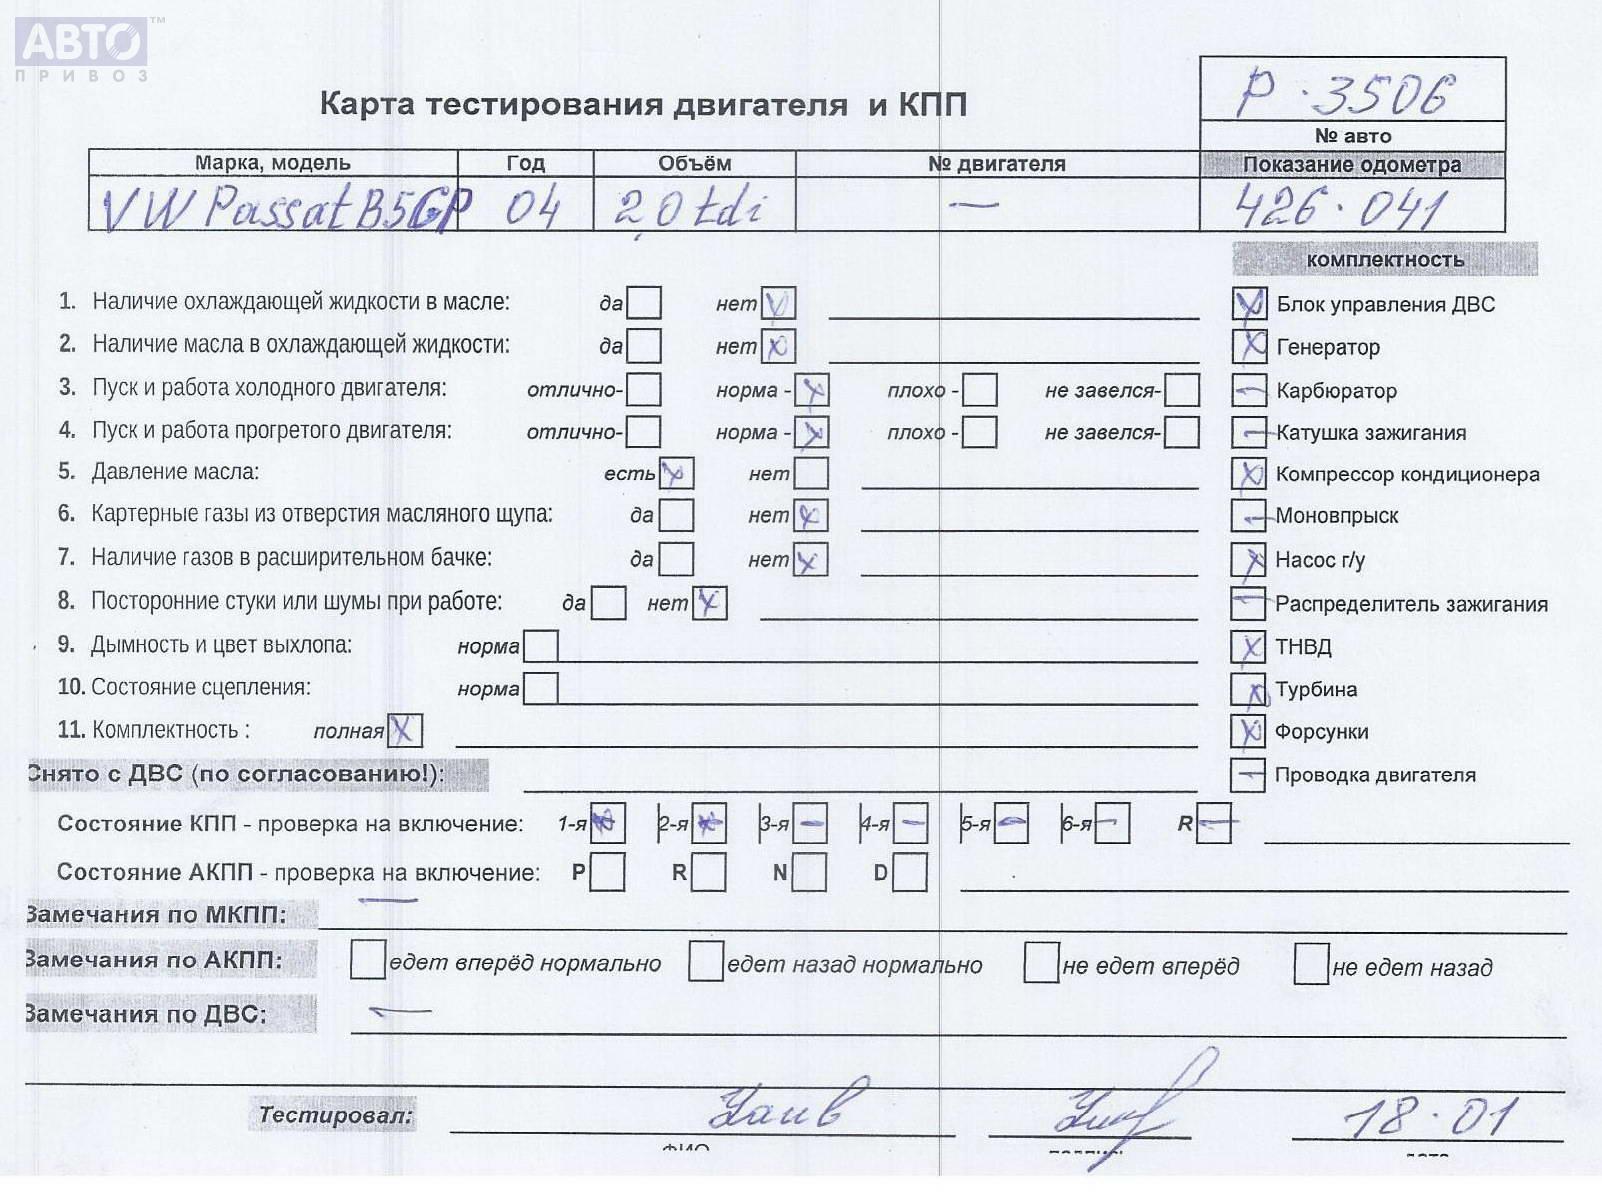 АВТО™
ПРИВОЗ
Р·3506
Карта тестирования двигателя и КПП
№ авто
Марка, модель Год Объём № двигателя Показание одометра
VW Passat B5GP 04 2,0 tdi — 426·041
комплектность
1. Наличие охлаждающей жидкости в масле: да нет V Блок управления ДВС X
2. Наличие масла в охлаждающей жидкости: да нет X Генератор X
3. Пуск и работа холодного двигателя: отлично- норма - X плохо - не завелся- — Карбюратор
4. Пуск и работа прогретого двигателя: отлично- норма - X плохо - не завелся- — Катушка зажигания
5. Давление масла: есть X нет X Компрессор кондиционера
6. Картерные газы из отверстия масляного щупа: да нет X — Моновпрыск
7. Наличие газов в расширительном бачке: да нет X X Насос г/у
8. Посторонние стуки или шумы при работе: да нет X — Распределитель зажигания
9. Дымность и цвет выхлопа: норма X ТНВД
10. Состояние сцепления: норма X Турбина
11. Комплектность : полная X X Форсунки
Снято с ДВС (по согласованию!): — Проводка двигателя
Состояние КПП - проверка на включение: 1-я X 2-я X 3-я — 4-я — 5-я — 6-я — R —
Состояние АКПП - проверка на включение: P R N D
Замечания по МКПП: —
Замечания по АКПП: едет вперёд нормально едет назад нормально не едет вперёд не едет назад
Замечания по ДВС: —
Тестировал: 18·01
ФИО подпись дата